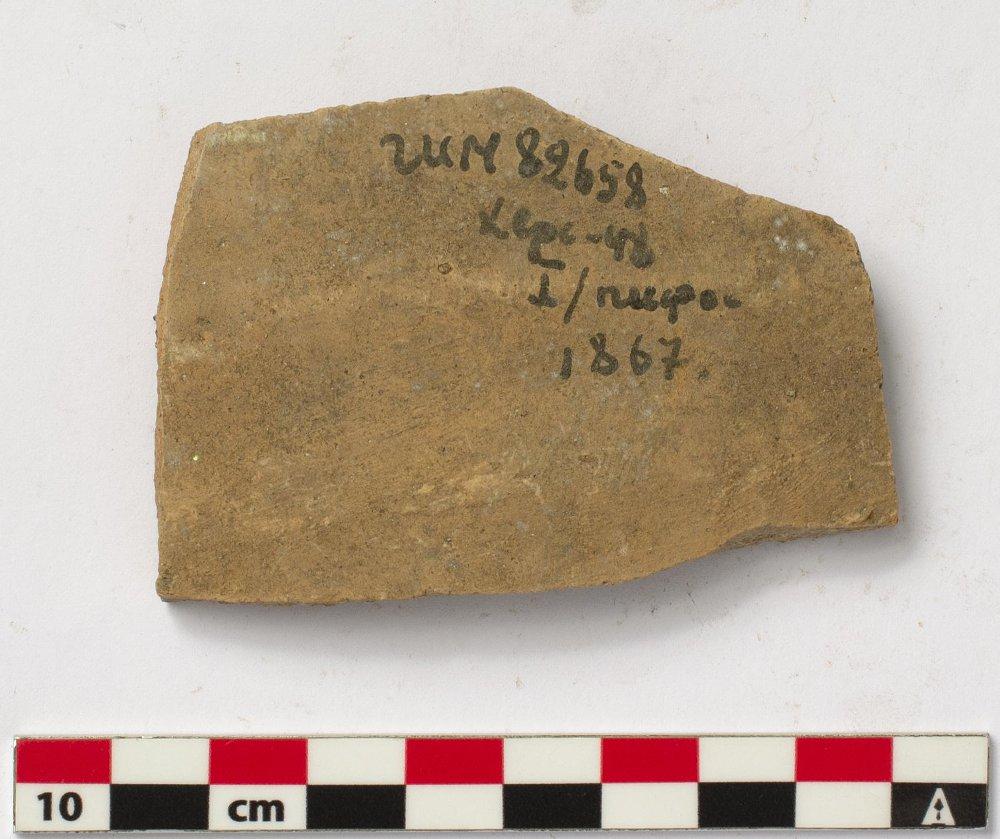 ГИМ 82658
Херс-48
I/пифос
1867.
10 cm